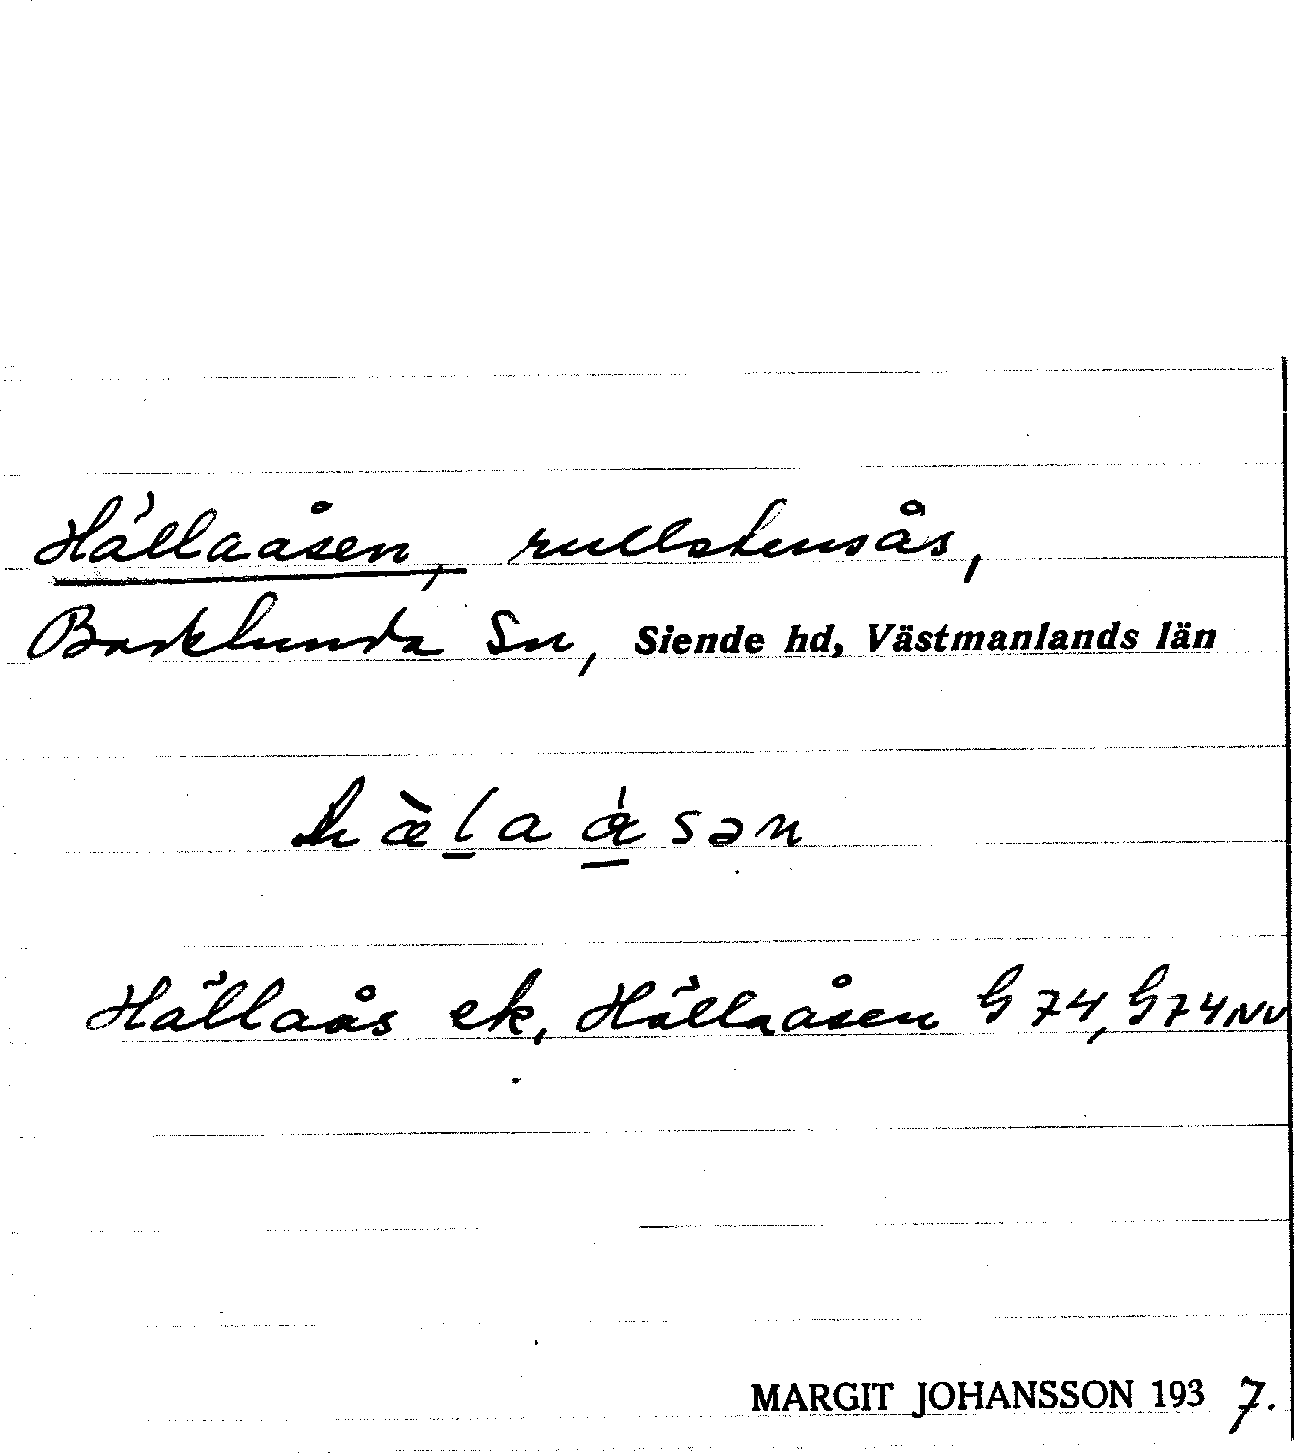 Hällaåsen, rullstensås,
Barklunda Sn, Siende hd, Västmanlands län
hæ̀l̠aǻ̠sən
Hällaås ek, Hällaåsen G 74, G 74 NV
MARGIT JOHANSSON 1937.